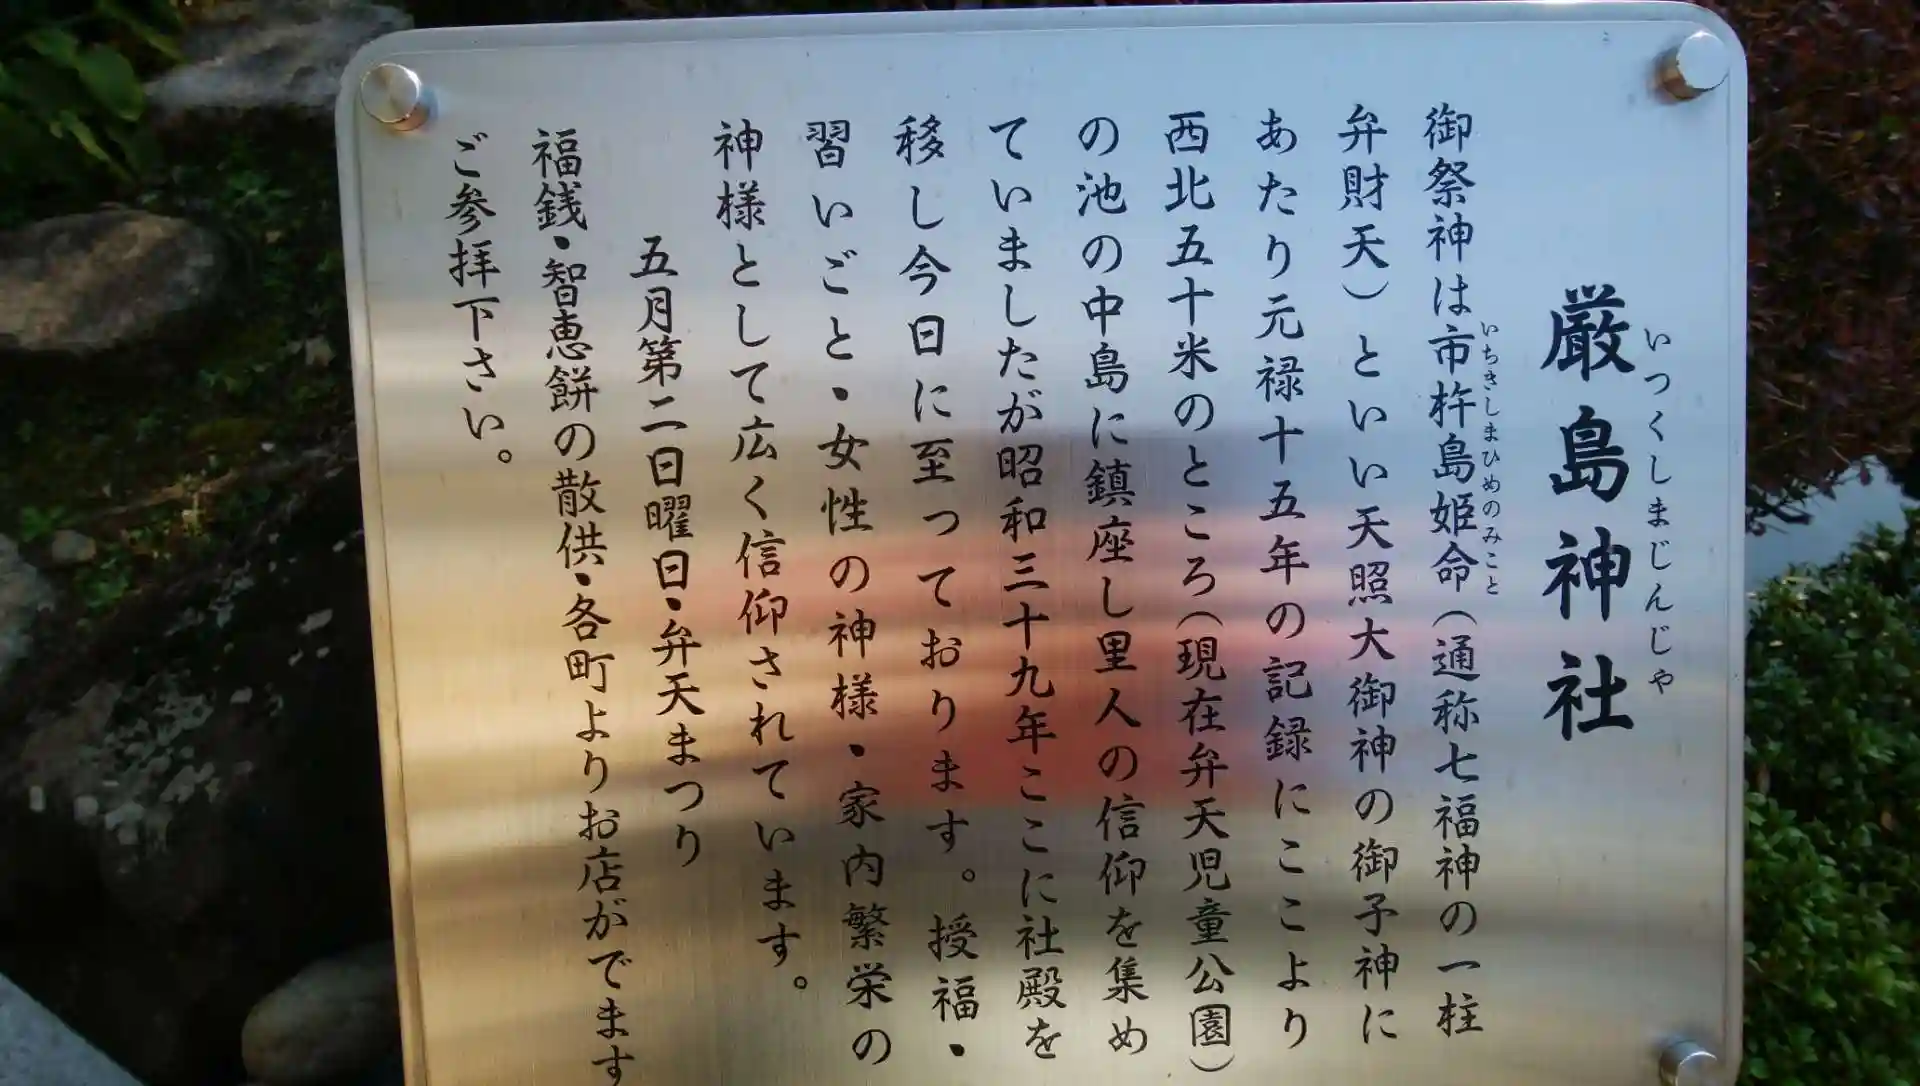 厳島神社
いつくしまじんじゃ
御祭神は市杵島姫命（通称七福神の一柱
いちきしまひめのみこと
弁財天）といい天照大御神の御子神に
あたり元禄十五年の記録にここより
西北五十米のところ（現在弁天児童公園）
の池の中島に鎮座し里人の信仰を集め
ていましたが昭和三十九年ここに社殿を
移し今日に至っております。授福・
習いごと・女性の神様・家内繁栄の
神様として広く信仰されています。
五月第二日曜日・弁天まつり
福銭・智恵餅の散供・各町よりお店がでます
ご参拝下さい。